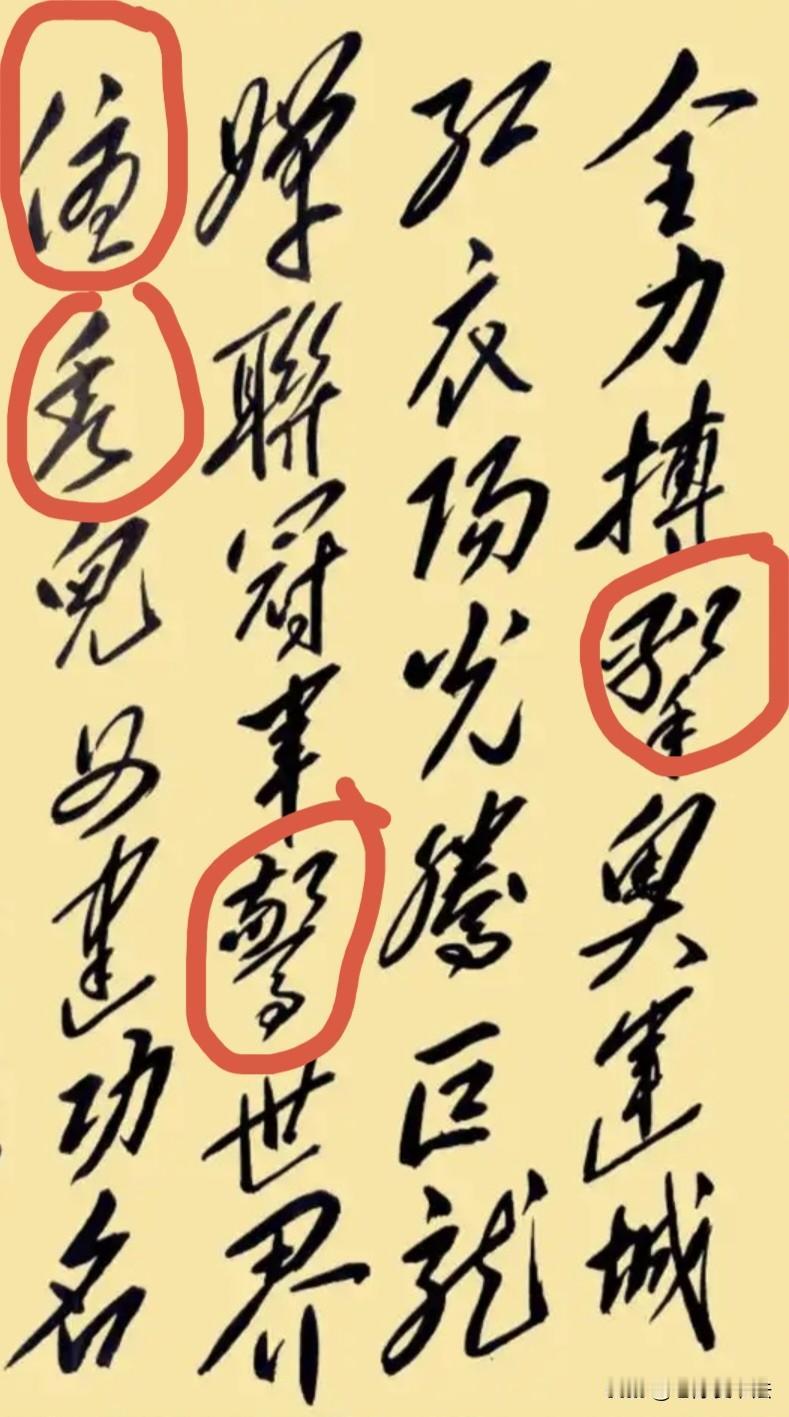 全力搏擊奥運城
紅衣陽光騰巨龍
嬋聯冠軍驚世界
優秀兒女建功名